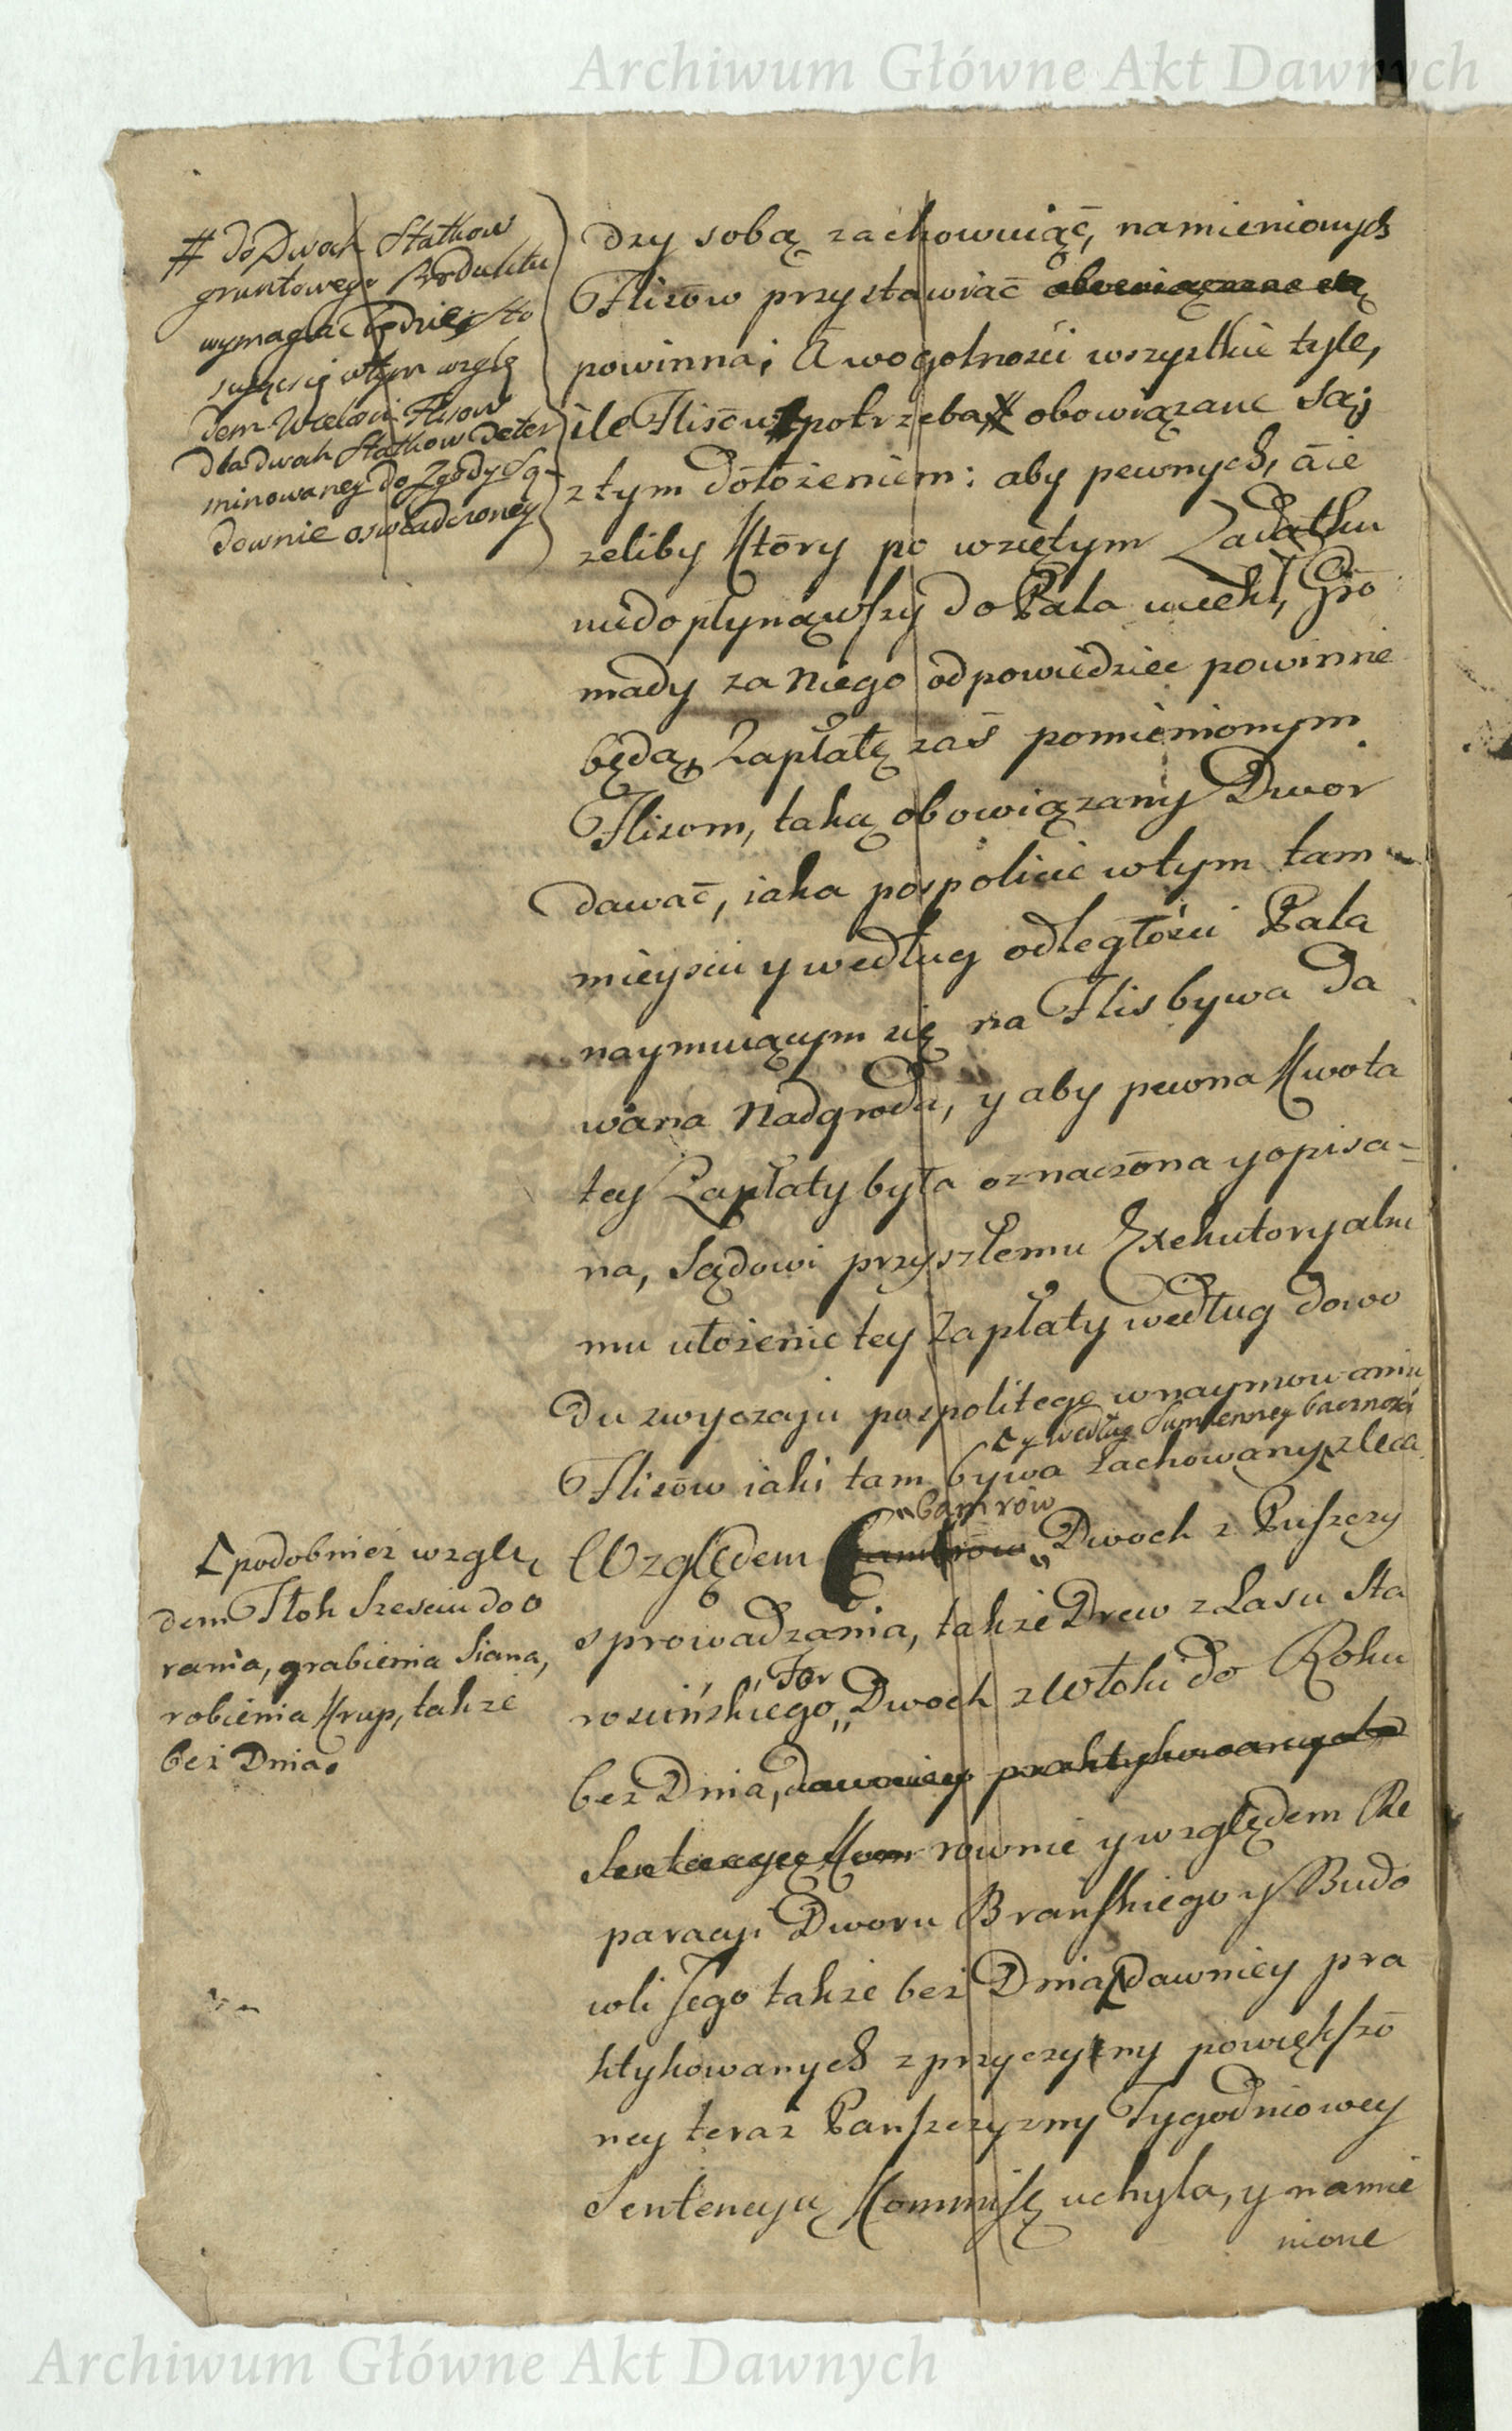 Archiwum Główne Akt Dawnych
# do Dwoch Statkow
gruntowego Produktu
wymagac będzie, sto
suiąc się wtym wzglę
dem Wielosci Flisow
dla dwoch Statkow deter
minowaney do Zgody Są-
downie oswiadczoney
dzy sobą zachowuiąć, namienionych
Flisów przystawiać obowiązane są
powinna; A wogolnosci wszystkie tyle,
ile Flisów potrzeba obowiązane są;
ztym dołożeniem: aby pewnych, aie
zeliby Ktory po wziętym Zadatku
niedopłynąwszy do Pala uciekł, Gro
mady za niego odpowiedziec powinne
będą, Zapłatę zaś pomienionym
Flisom, taką obowiązany Dwor
dawać, iaka pospolicie wtym tam
mieyscu y według odległości Pala
naymuiącym się na Flis bywa da
wana Nadgroda, y aby pewna Kwota
tey Zapłaty była oznaczona y opisa-
na, Sądowi przyszłemu Exekutoryalne
mu ułożenie tey Zapłaty według dowo
du zwyczaju pospolitego wnaymowaniu
y według Sumienney baczności
Flisów iaki tam bywa zachowany, zleca
"Bamrów
Względem Dwoch z Puszczy
sprowadzania, takze Drew z Lasu Sta
roscińskiego Dwoch zWłoki do Roku
For
bez Dnia, dawniey praktykowanych
Sentencyą Kom rownie y względem Re
paracyi Dworu Branskiego y Budo
wli Jego takze bez Dnia dawniey pra
ktykowanych zprzyczyny powiększo
ney teraz Panszczyzny Tygodniowey
Sentencyą Kommissę uchyla, y namie
nione
podobniez wzglę
dem Tłok Szesciu do o
rania, grabienia Siana,
robienia Krup, takze
bez Dnia.
Archiwum Główne Akt Dawnych